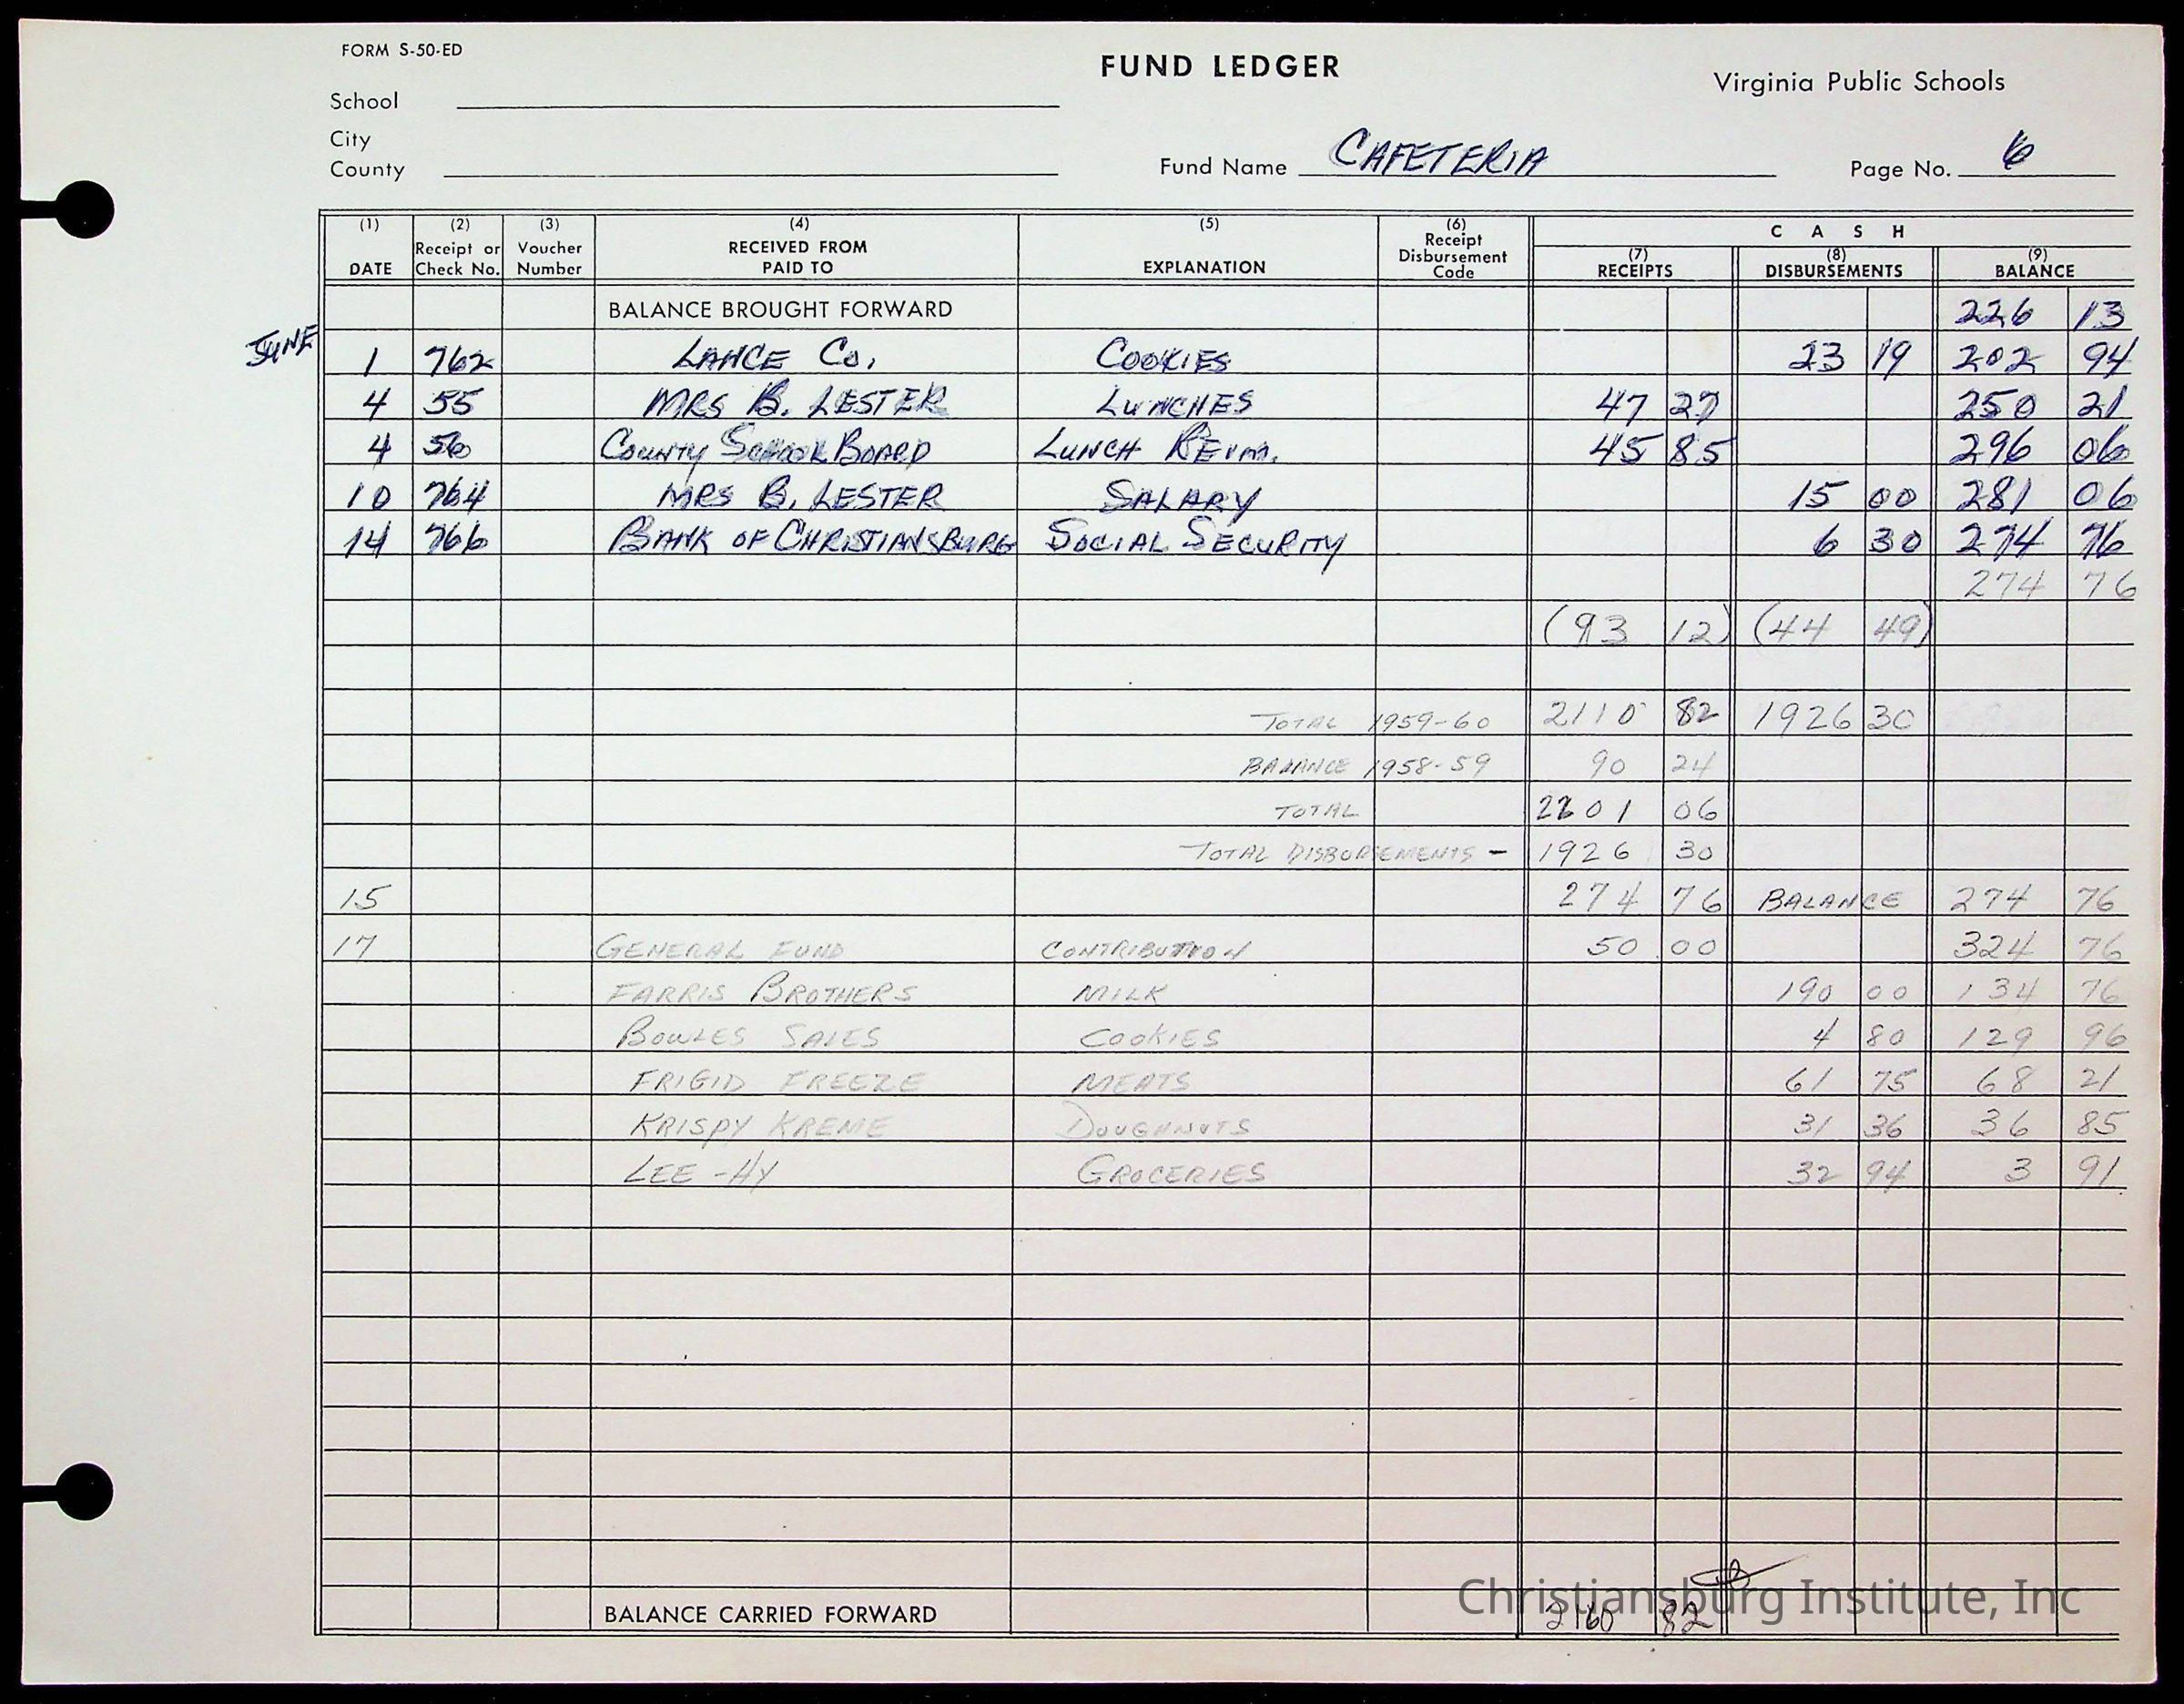 FORM S-50-ED
FUND LEDGER
Virginia Public Schools
School
City
County
Fund Name CAFETERIA
Page No. 6
(1) DATE
(2) Receipt or Check No.
(3) Voucher Number
(4) RECEIVED FROM PAID TO
(5) EXPLANATION
(6) Receipt Disbursement Code
CASH
(7) RECEIPTS
(8) DISBURSEMENTS
(9) BALANCE
BALANCE BROUGHT FORWARD 226 13
JUNE
1 762 LANCE Co. COOKIES 23 19 202 94
4 55 MRS B. LESTER LUNCHES 47 27 250 21
4 56 COUNTY SCHOOL BOARD LUNCH REIM. 45 85 296 06
10 764 MRS B. LESTER SALARY 15 00 281 06
14 766 BANK OF CHRISTIANSBURG SOCIAL SECURITY 6 30 274 76
274 76
(93 12) (44 49)
TOTAL 1959-60 2110 82 1926 30
BALANCE 1958-59 90 24
TOTAL 2201 06
TOTAL DISBURSEMENTS - 1926 30
15 274 76 BALANCE 274 76
17 GENERAL FUND CONTRIBUTION 50 00 324 76
FARRIS BROTHERS MILK 190 00 134 76
BOWLES SALES COOKIES 4 80 129 96
FRIGID FREEZE MEATS 61 75 68 21
KRISPY KREME DOUGHNUTS 31 36 36 85
LEE-HY GROCERIES 32 94 3 91
BALANCE CARRIED FORWARD 2160 82
Christiansburg Institute, Inc